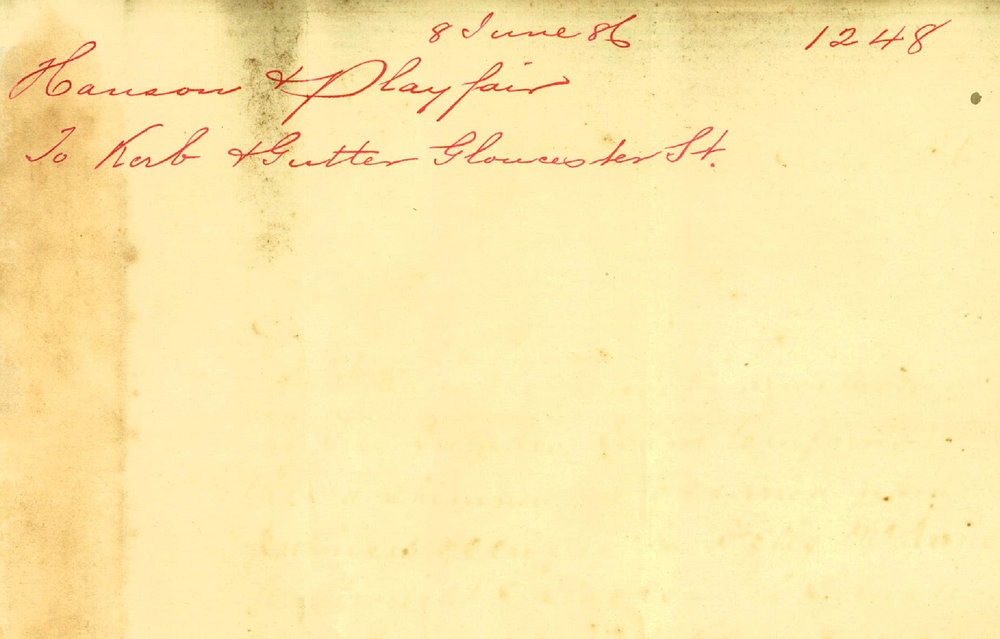 8 June 86 1248
Hanson & Playfair
To Kerb & Gutter Gloucester St.